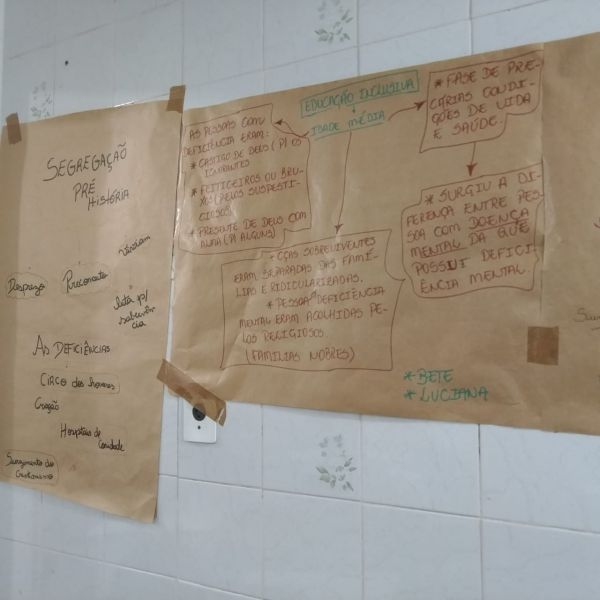 SEGREGAÇÃO
PRÉ
HISTÓRIA
Desprezo
Preconceito
luta p/
AS DEFICIÊNCIAS
CIRCO dos horrores
Criação
Hospitais de
Caridade
Surgimento do
Cristianismo
EDUCAÇÃO INCLUSIVA
IDADE MÉDIA
AS PESSOAS COM
DEFICIÊNCIA ERAM:
* CASTIGO DE DEUS (P/ OS
IGNORANTES
* FEITICEIROS OU BRU-
XOS (PELOS SUSPESTI-
CIOSOS)
* PRESENTE DE DEUS COM
ALMA (P/ ALGUNS)
* FASE DE PRE-
CÁRIAS CONDI-
ÇÕES DE VIDA
E SAÚDE.
* SURGIU A DI-
FERENÇA ENTRE PES-
SOA COM DOENÇA
MENTAL DA QUE
POSSUI DEFICI-
ÊNCIA MENTAL.
* CÇAS SOBREVIVENTES
ERAM SEPARADAS DAS FAMÍ-
LIAS E RIDICULARIZADAS.
* PESSOA C/ DEFICIÊNCIA
MENTAL ERAM ACOLHIDAS PE-
LOS RELIGIOSOS.
(FAMÍLIAS NOBRES)
* BETE
* LUCIANA